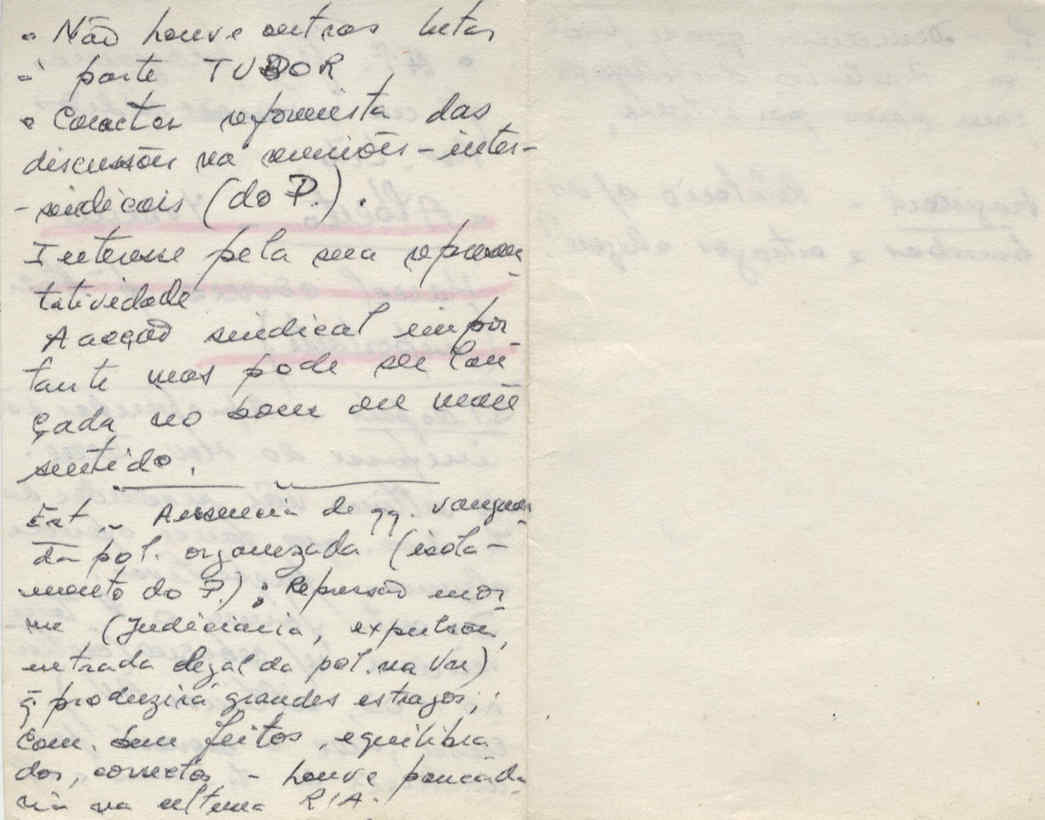 • Não houve outras lutas
à parte TUDOR
• Caracter reformista das
discussões na reuniões - inter-
- sindicais (do P.).
Interesse pela sua represen
tatividade
A acção sindical impor
tante mas pode ser lan
çada no bom ou mau
sentido.
Est - Ausencia de qq. vanguar
da pol. organizada (isola-
mento do P.); Repressão enor
me (Judiciaria, expulsões,
entrada ilegal da pol. na Un)
q̃ produzirá grandes estragos;
Com. bem feitos, equilibra
dos, correctos - houve pancada
ria na ultima RIA.